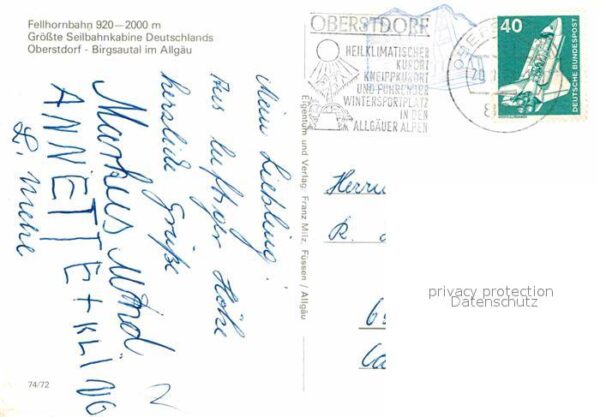 Fellhornbahn 920—2000 m
Größte Seilbahnkabine Deutschlands
Oberstdorf - Birgsautal im Allgäu
Mein Liebling!
Aus luftiger Höhe
herzliche Grüße
Markus
ANNETTE + KLINO
74/72
Eigentum und Verlag: Franz Milz, Füssen / Allgäu
OBERSTDORF
HEILKLIMATISCHER
KURORT
KNEIPPKURORT
UND FÜHRENDER
WINTERSPORTPLATZ
IN DEN
ALLGÄUER ALPEN
40
DEUTSCHE BUNDESPOST
Herrn
R.
privacy protection
Datenschutz